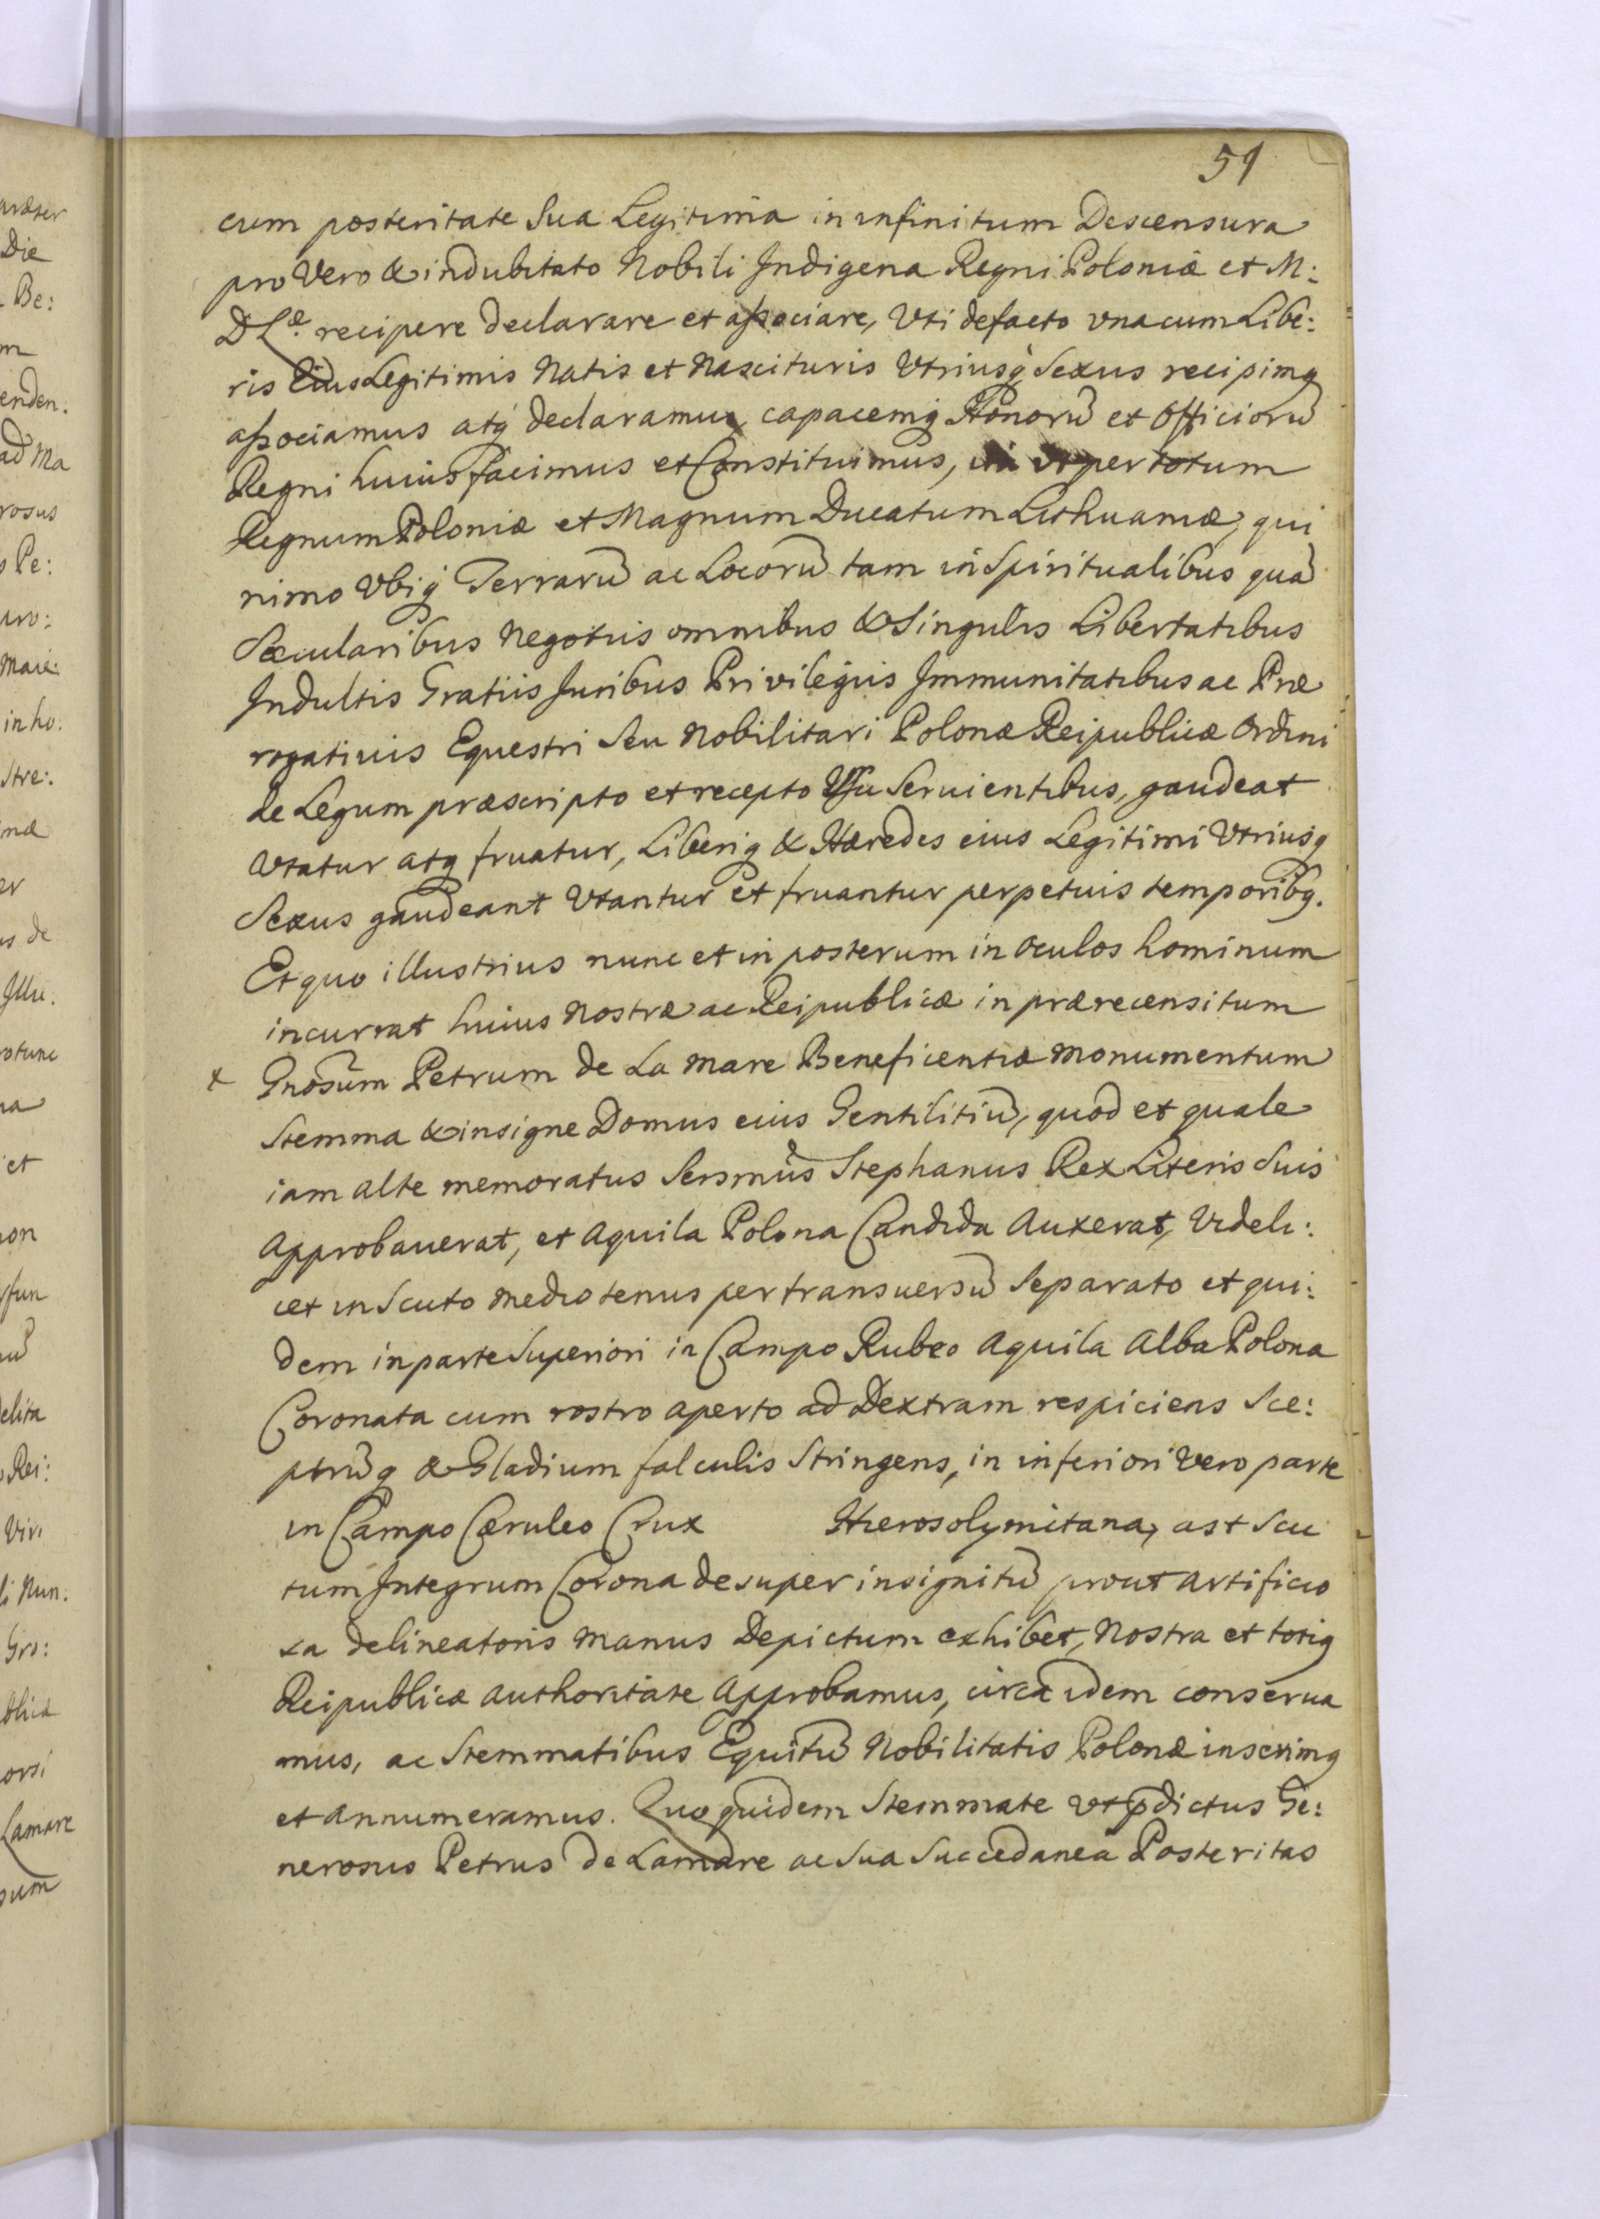 51
cum posteritate Sua Legitima in infinitum Descensura
pro Vero & indubitato Nobili Indigena Regni Poloniæ et M:
D Læ recipere declarare et associare, Uti defacto vna cum Libe:
ris Eius Legitimis Natis et Nascituris Vtriusq Sexus recipimq
associamus atq declaramus, capacemq Honorū et Officiorū
Regni huius facimus et Constituimus, ut per totum
Regnum Poloniæ et Magnum Ducatum Lithuaniæ, qui
nimo Vbiq Terrarū ac Locorū tam in Spiritualibus quā
Sæcularibus Negotiis omnibus & Singulis Libertatibus
Indultis Gratiis Juribus Privilegiis Immunitatibus ac Præ
rogativis Equestri Seu Nobilitari Polonæ Reipublicæ Ordini
de Legum præscripto et recepto Usu Seruientibus, gaudeat
Vtatur atq fruatur, Liberiq & Hæredes eius Legitimi Vtriusq
Sexus gaudeant Vtantur et fruantur perpetuis temporibq.
Et quo illustrius nunc et in posterum in oculos hominum
incurrat huius Nostræ ac Reipublicæ in prærecensitum
x Gnosum Petrum de La Mare Beneficentiæ Monumentum
Stemma & insigne Domus eius Gentilitiū, quod et quale
iam alte memoratus Sersmus Stephanus Rex Literis Suis
Approbauerat, et Aquila Polona Candida Auxerat, Videli:
cet in Scuto medio tenus per transuersū Separato et qui:
dem in parte Superiori in Campo Rubeo Aquila Alba Polona
Coronata cum rostro aperto ad Dextram respiciens Sce:
ptrūq & Gladium falculis Stringens, in inferiori Vero parte
in Campo Cæruleo Crux Hierosolymitana, ast Scu
tum Integrum Corona desuper insignitū prout Artificio
sa delineatoris Manus Depictum exhibet, Nostra et totiq
Reipublicæ Authoritate Approbamus, circa idem conserua
mus, ac Stemmatibus Equitū Nobilitatis Polonæ inserimq
et Annumeramus. Quo quidem Stemmate vt pdictus Ge:
nerosus Petrus de Lamare ac Sua Succedanea Posteritas